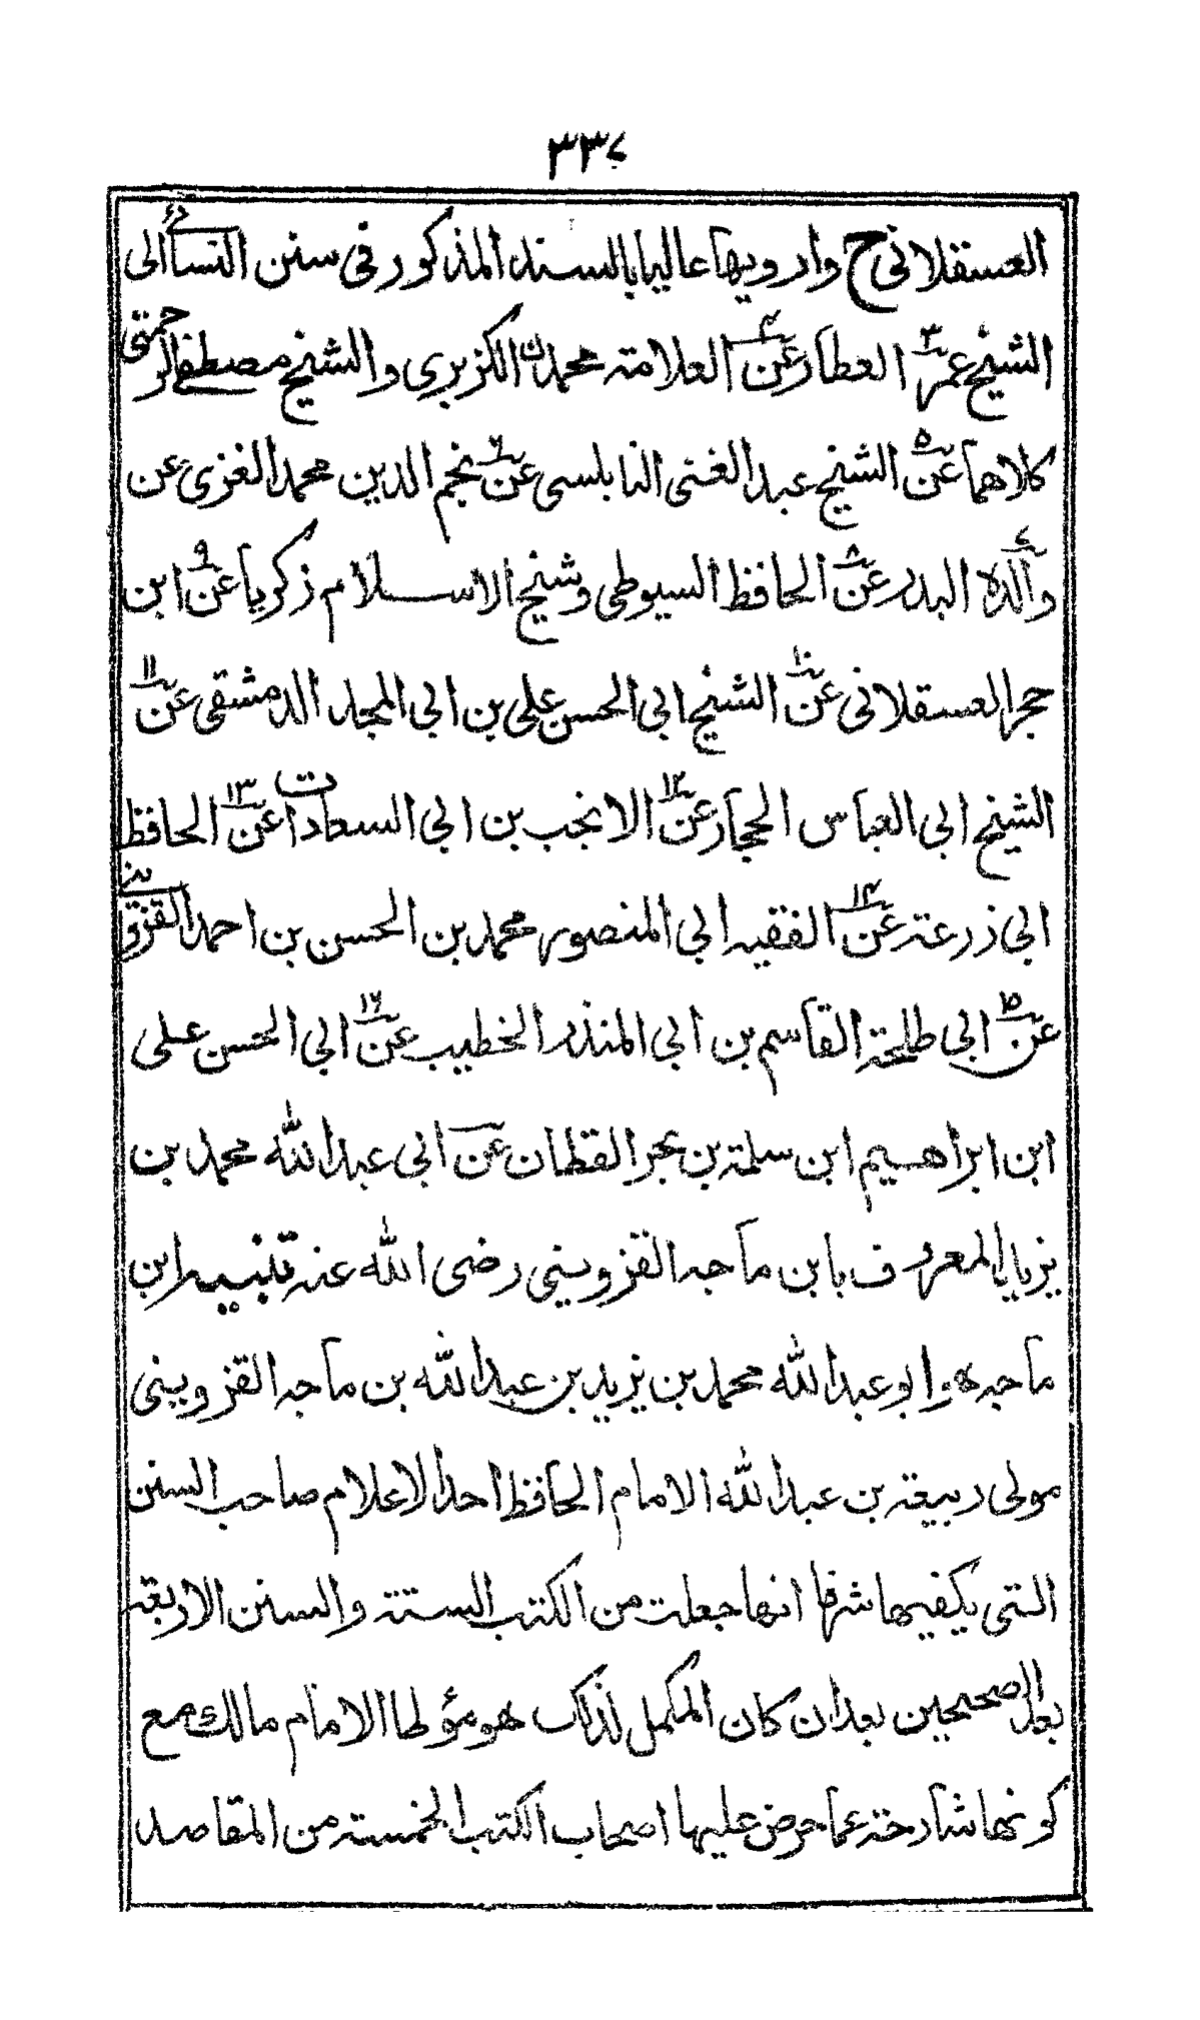 ٣٣٧
العسقلانی ح وارويها عاليا بالسند المذكور فی سنن النسائی الی
الشيخ عمر٣ العطار عن٤ العلامة محمدن الكزبری والشيخ مصطفی الرحمتی
كلاهما عن٥ الشيخ عبد الغنی النابلسی عن٦ نجم الدين محمد الغزی عن
والده٧ البدر عن٨ الحافظ السيوطی وشيخ الاسلام زكريا عن٩ ابن
حجر العسقلانی عن١٠ الشيخ ابی الحسن علی بن ابی المجد الدمشقی عن١١
الشيخ ابی العباس الحجار عن١٢ الانجب بن ابی السعادات عن١٣ الحافظ
ابی زرعة عن١٤ الفقيه ابی المنصور محمد بن الحسن بن احمد القزوينی
عن١٥ ابی طلحة القاسم بن ابی المنذر الخطيب عن١٦ ابی الحسن علی
ابن ابراهيم ابن سلمة بن بحر القطان عن ابی عبد الله محمد بن
يزيد المعروف بابن ماجه القزوينی رضی الله عنه تنبيه ابن
ماجه هو ابو عبد الله محمد بن يزيد بن عبد الله بن ماجه القزوينی
مولی ربيعة بن عبد الله الامام الحافظ احد الاعلام صاحب السنن
التی يكفيها شرفا انها جعلت من الكتب الستة والسنن الاربعة
بعد الصحيحين بعد ان كان المكمل لذلك هو مؤطا الامام مالك مع
كونها شارحة عما حرض عليها اصحاب الكتب الخمسة من المقاصد